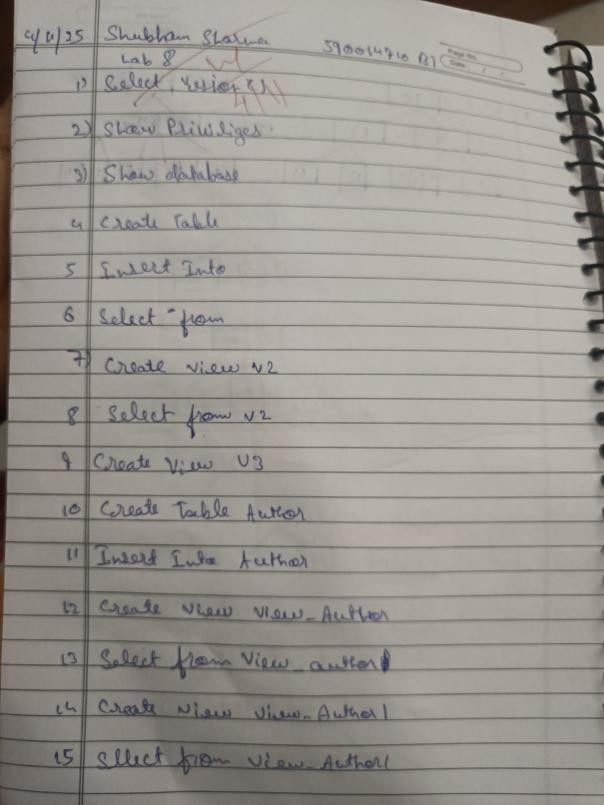 4/11/25 Shubham Sharma 590014710 B1
Page No.
Date / /
Lab 8
1) Select version();
4/11
2) Show Priviliges
3) Show database
4 Create Table
5 Insert Into
6 Select - from
7) Create view v2
8 Select from v2
9 Create View V3
10 Create Table Author
11 Insert Into Author
12 Create view view_Author
13 Select from View_author
14 Create View View_Author1
15 Sllect from View_Author1